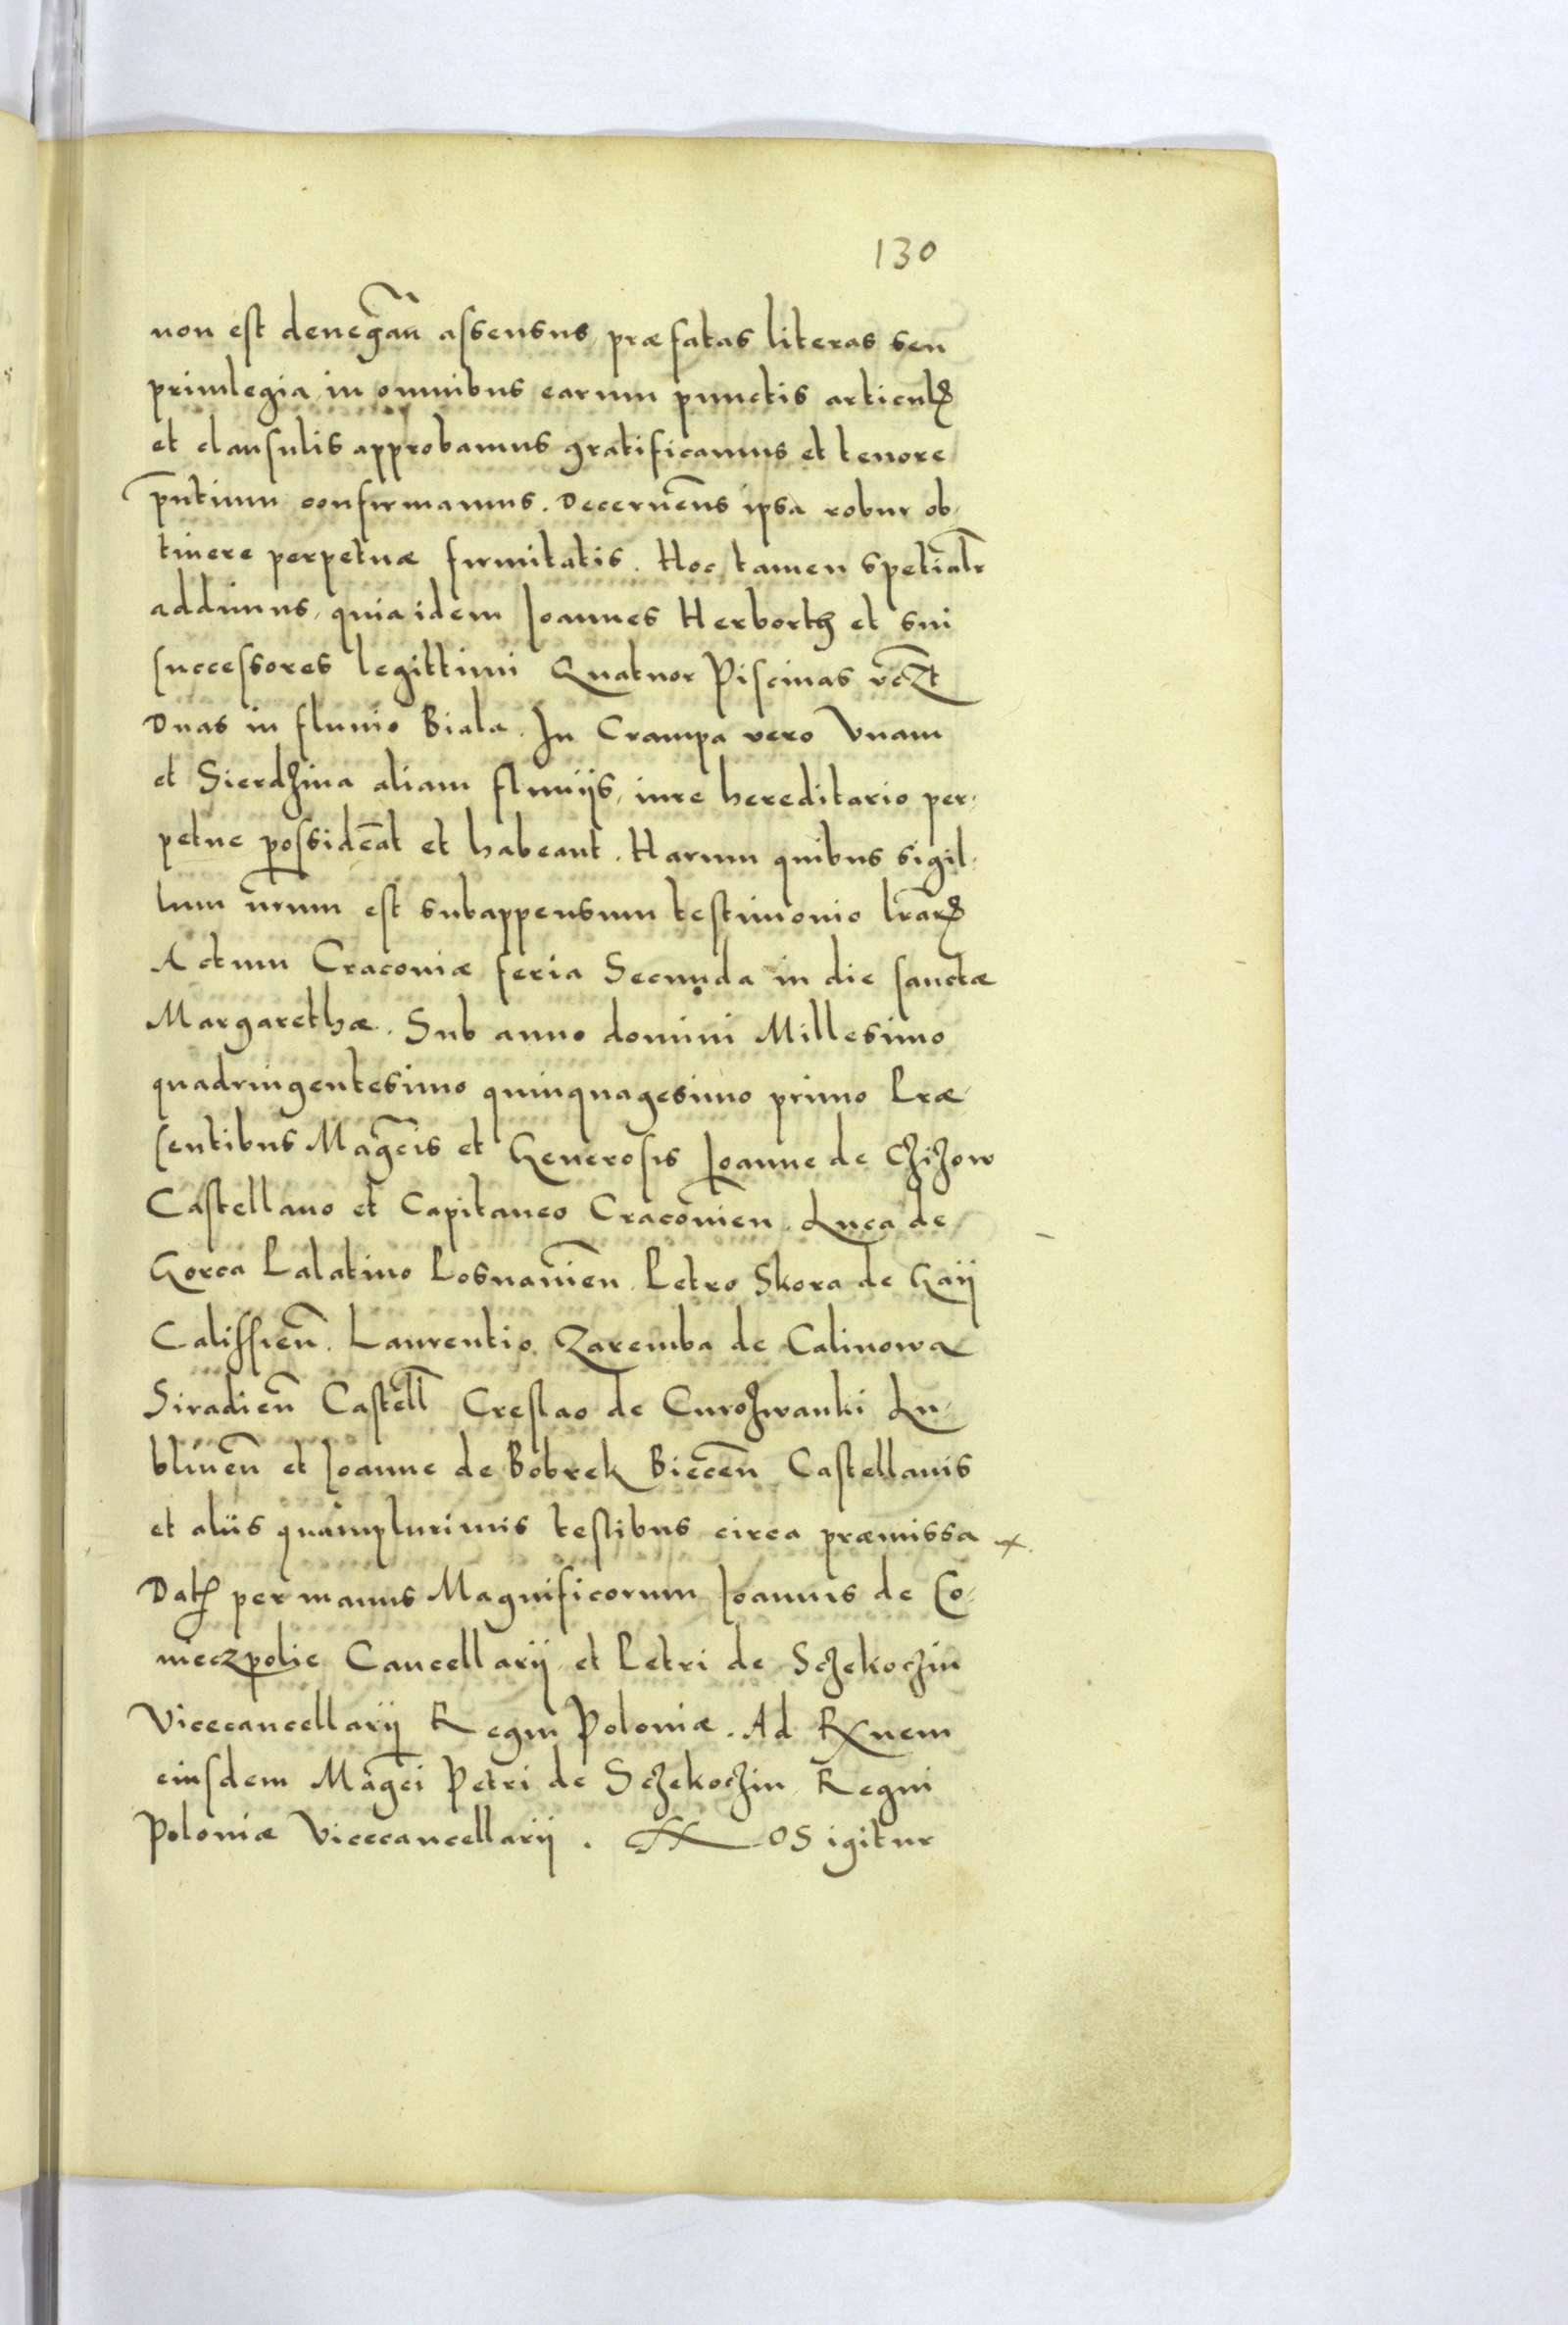 130
non est denegañ assensus, præfatas literas seu
priuilegia in omnibus earum punctis articul
et clausulis approbamus gratificamus et tenore
pñtium confirmamus. Decerneñs ipsa robur ob-
tinere perpetuæ firmitatis. Hoc tamen spetialr̃
addimus, quia idem Joannes Herborth et sui
successores legittimi Quatuor Piscinas vczt
Duas in fluuio Biala. In Crampa vero Vnam
et Sierdzina aliam fluuijs, iure hereditario per-
petue possideãt et habeant. Harum quibus sigil-
lum nr̃um est subappensum testimonio lr̃ar
Actum Cracouiæ feria Secunda in die sanctæ
Margarethæ. Sub anno domini Millesimo
quadringentesimo quinquagesimo primo Præ-
sentibus Magc̃is et Generosis Joanne de Czizow
Castellano et Capitaneo Cracouien̄. Luca de
Gorca Palatino Posnanien̄. Petro Skora de Gaij
Calissien̄. Laurentio Zaremba de Calinowa
Siradien̄ Castell̄ Creslao de Curozwanki Lu-
blinen̄ et Joanne de Bobrek Biecen̄ Castellanis
et alijs quamplurimis testibus circa præmissa
Dat per manus Magnificorum Joannis de Co-
nieczpolie Cancellarij et Petri de Sczekoczin
Vicecancellarij Regni Poloniæ. Ad Rxnem
eiusdem Magc̃i Petri de Sczekoczin Regni
Poloniæ Vicecancellarij. NOS igitur